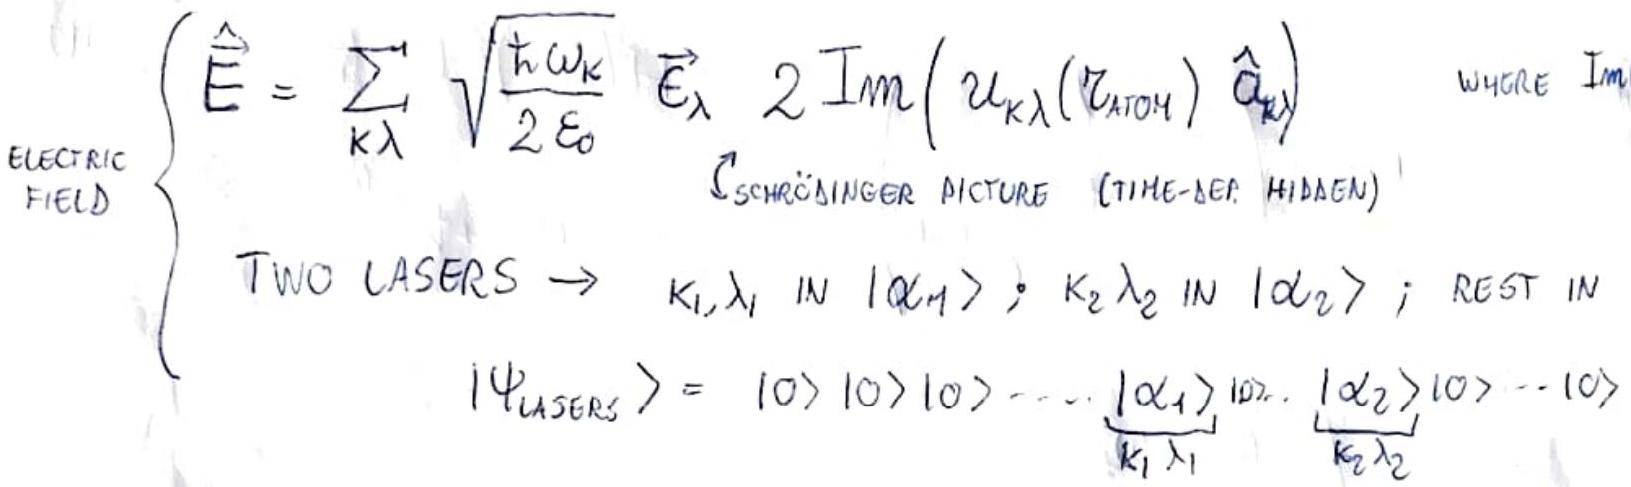 ELECTRIC FIELD { \hat{\vec{E}} = \sum_{κλ} \sqrt{\frac{ħω_κ}{2ε_0}} \vec{ε}_λ 2 Im( u_{κλ}(r_{ATOM}) \hat{a}_{κλ} ) WHERE Im
SCHRÖDINGER PICTURE (TIME-DEP. HIDDEN)
TWO LASERS → κ_1,λ_1 IN |α_1⟩ ; κ_2 λ_2 IN |α_2⟩ ; REST IN
|Ψ_{LASERS}⟩ = |0⟩ |0⟩ |0⟩ ---- \underbrace{|α_1⟩}_{κ_1 λ_1} |0⟩.. \underbrace{|α_2⟩}_{κ_2 λ_2} |0⟩ --- |0⟩